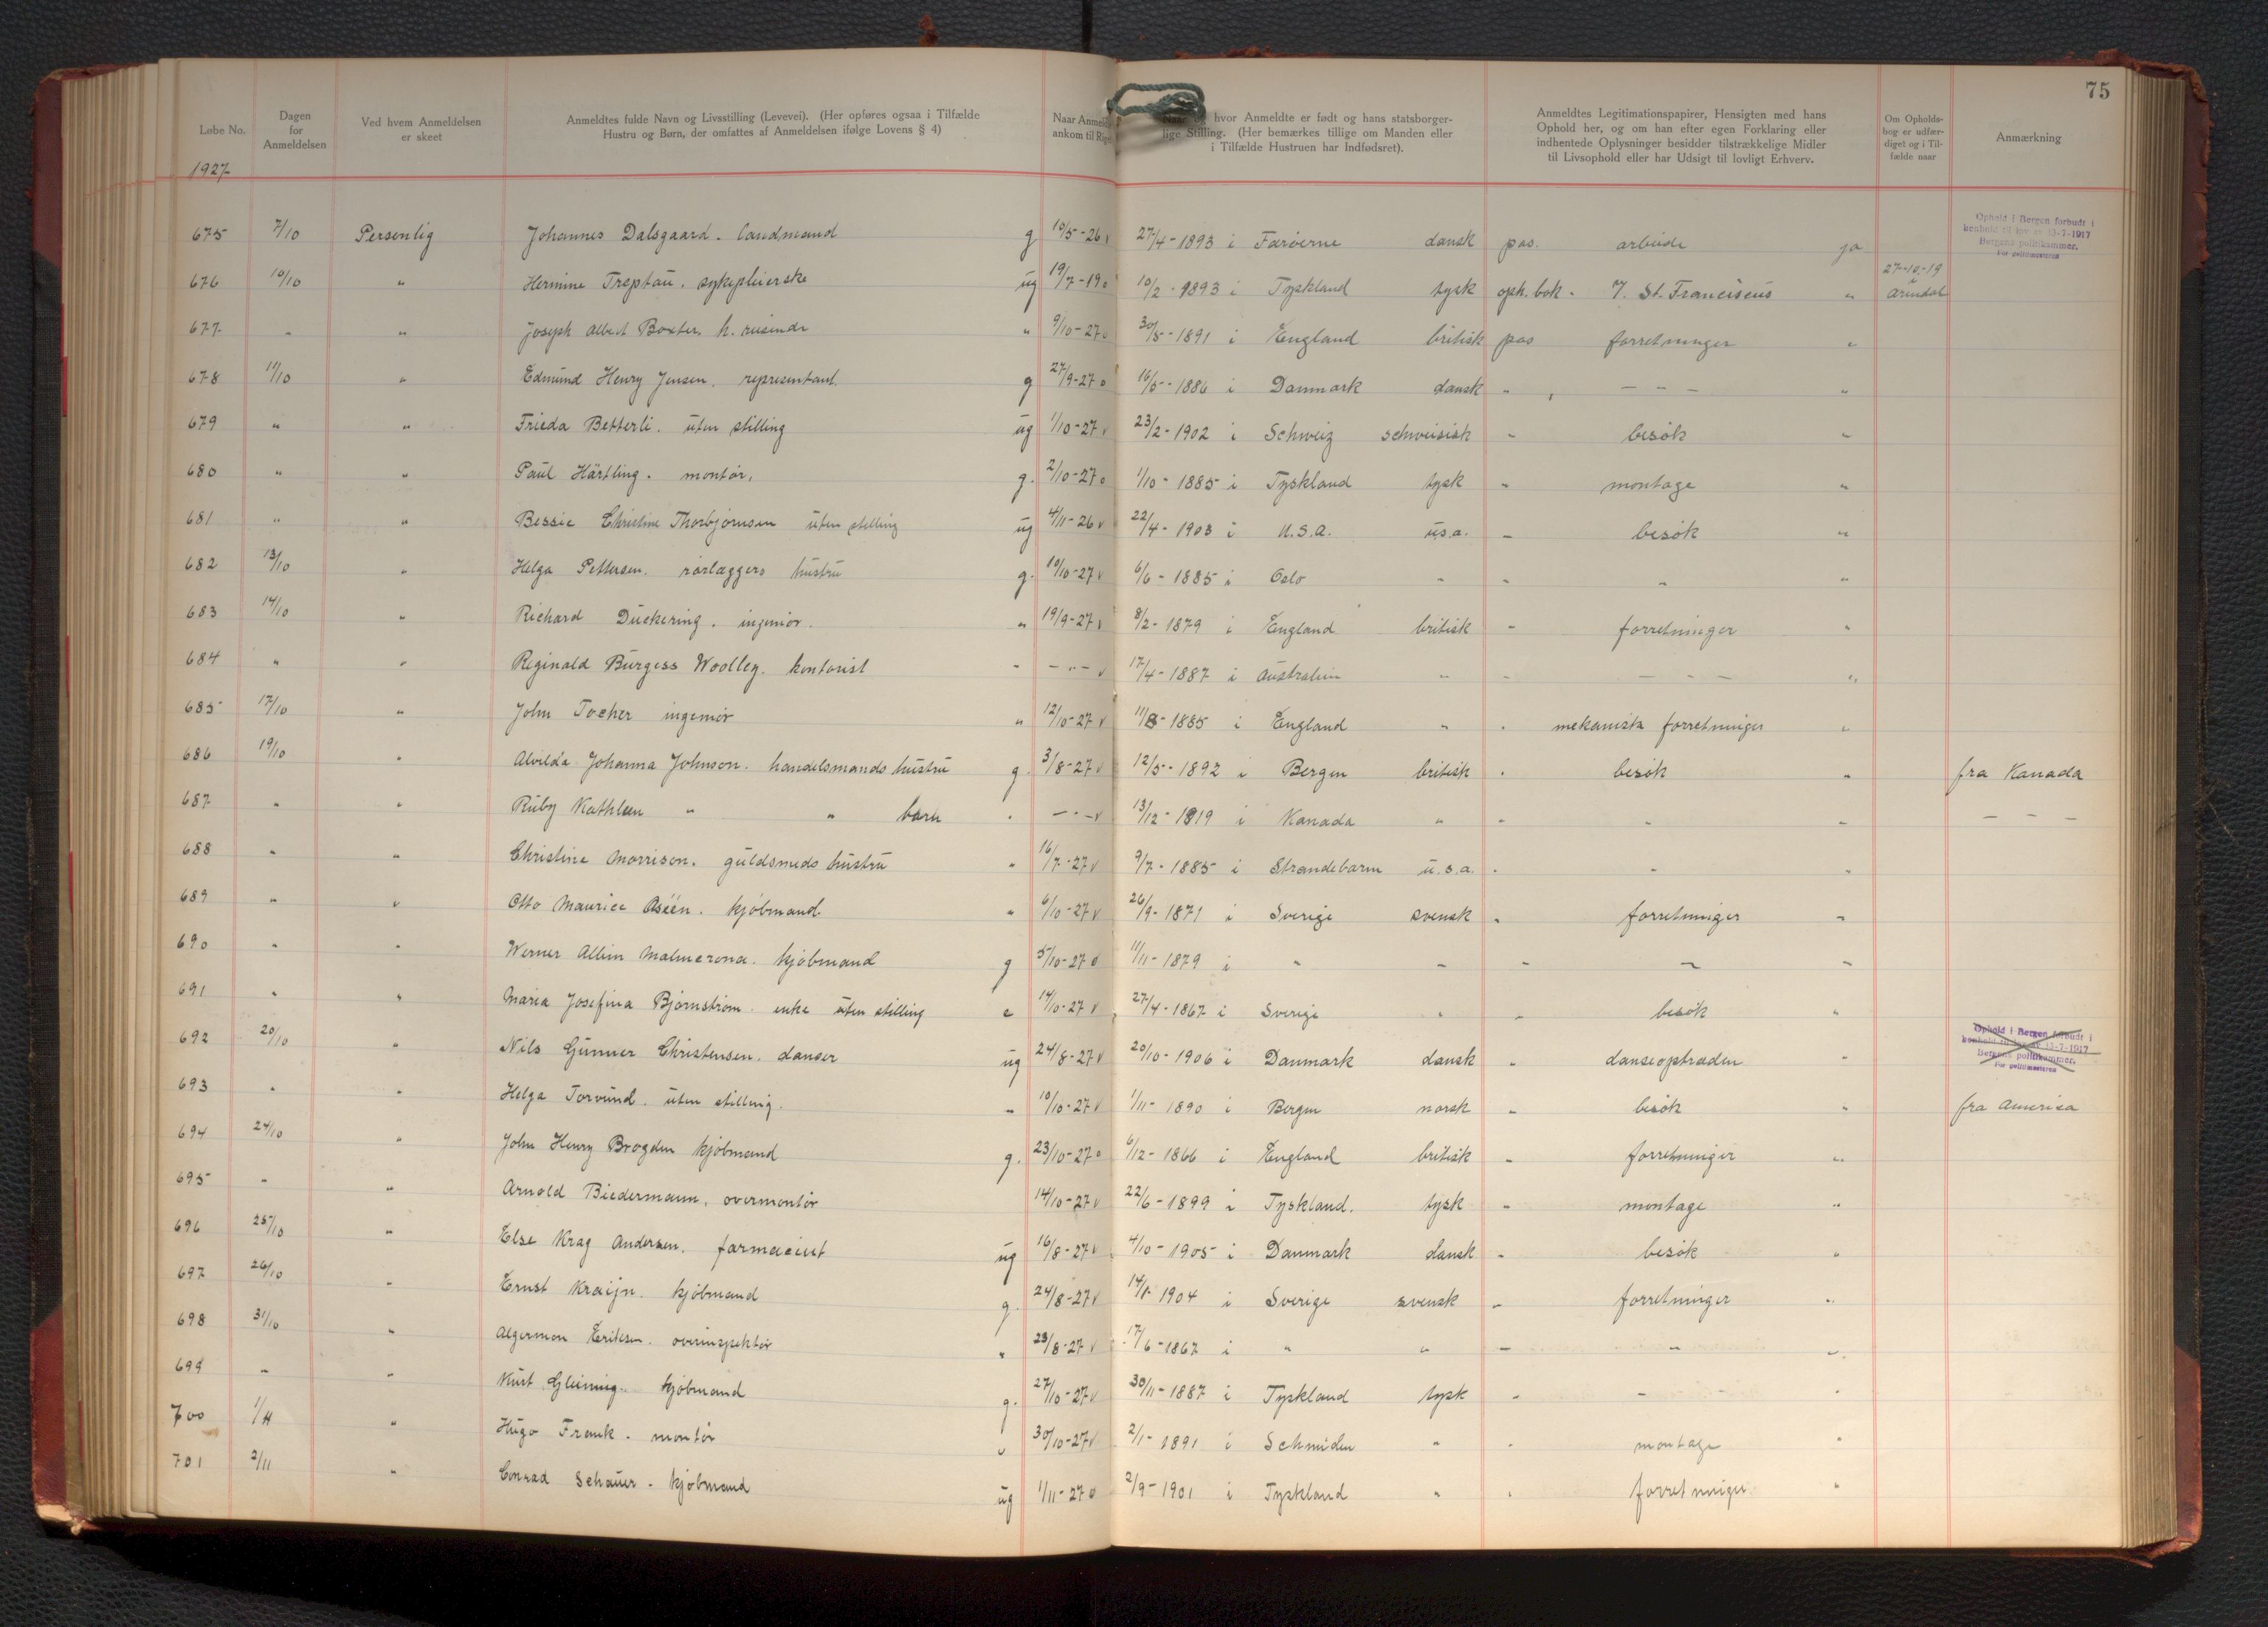 75
Løbe No.
Dagen
for
Anmeldelsen
Ved hvem Anmeldelsen
er skeet
Anmeldtes fulde Navn og Livsstilling (Levevei). (Her opføres ogsaa i Tilfælde
Hustru og Børn, der omfattes af Anmeldelsen ifølge Lovens § 4)
Naar Anmeld
ankom til Rig
hvor Anmeldte er født og hans statsborger-
lige Stilling. (Her bemærkes tillige om Manden eller
i Tilfælde Hustruen har Indfødsret).
Anmeldtes Legitimationspapirer, Hensigten med hans
Ophold her, og om han efter egen Forklaring eller
indhentede Oplysninger besidder tilstrækkelige Midler
til Livsophold eller har Udsigt til lovligt Erhverv.
Om Opholds-
bog er udfær-
diget og i Til-
fælde naar
Anmærkning
1927
675 7/10 Personlig Johannes Dalsgaard. landmand g 10/5-26 v 27/4-1893 i Færöerne dansk pas. arbeide ja
Ophold i Bergen forbudt i
henhold til lov av 13-7-1917
Bergens politikammer.
For politimesteren
676 10/10 " Hermine Treptau. sykepleierske ug 19/7-19 o 10/2-1893 i Tyskland tysk oph.bok. St. Franciscus " 27-10-19 Arendal
677 " " Joseph Albert Boxter. h. reisende " 9/10-27 o 30/5-1891 i England britisk pas forretninger "
678 11/10 " Edmund Henry Jensen. representant. g 27/9-27 o 16/5-1886 i Danmark dansk " - " - "
679 " " Frieda Betterli. uten stilling ug 1/10-27 v 23/2-1902 i Schweiz schweisisk " besök "
680 " " Paul Härtling. montör. g. 2/10-27 o 1/10-1885 i Tyskland tysk " montage "
681 " " Bessie Christine Thorbjørnsen uten stilling ug 4/11-26 v 22/4-1903 i U.S.A. u.s.a. " besök "
682 13/10 " Helga Pettersen. rørlæggers hustru g. 10/10-27 v 6/6-1885 i Oslo " " " "
683 14/10 " Richard Duckering. ingeniör. " 19/9-27 v 8/2-1879 i England britisk " forretninger "
684 " " Reginald Burgess Woolley. kontorist " - " - v 17/4-1887 i Australien " " - - - "
685 17/10 " John Tocher ingeniör " 12/10-27 v 11/8-1885 i England " " mekanisk forretninger "
686 19/10 " Alvilda Johanna Johnson. handelsmands hustru g. 3/8-27 v 12/5-1892 i Bergen britisk " besök " fra Kanada
687 " " Ruby Kathleen " " barn " - " - v 13/12-1919 i Kanada " " " " - - -
688 " " Christine Morrison. guldsmeds hustru " 16/7-27 v 9/7-1885 i Strandebarm u.s.a. " " "
689 " " Otto Maurice Oséen. kjöbmand " 6/10-27 v 26/9-1871 i Sverige svensk " forretninger "
690 " " Werner Albin Malmerona. kjöbmand g 5/10-27 o 11/11-1879 i " " " " "
691 " " Maria Josefina Bjørnstrøm. enke uten stilling e 14/10-27 v 27/4-1867 i Sverige " " besök "
692 20/10 " Nils Gunner Christensen. danser ug 24/8-27 v 20/10-1906 i Danmark dansk " danseoptræden "
Ophold i Bergen forbudt i
henhold til lov av 13-7-1917
Bergens politikammer.
For politimesteren
693 " " Helga Torvund. uten stilling. " 10/10-27 v 1/11-1890 i Bergen norsk " besök " fra America
694 24/10 " John Henry Brogden kjöbmand g. 23/10-27 o 6/12-1866 i England britisk " forretninger "
695 " " Arnold Biedermann. overmontör 14/10-27 v 22/6-1899 i Tyskland. tysk " montage "
696 25/10 " Else Krag Andersen. farmaceut ug 16/8-27 v 4/10-1905 i Danmark dansk " besök "
697 26/10 " Ernst Kraijn. kjöbmand g. 24/8-27 v 1904 i Sverige svensk " forretninger "
698 31/10 " Algernon Eriksen. overinspektör " 23/8-27 v 17/6-1867 i " " " " "
699 " " Kurt Gleinig. kjöbmand g. 27/10-27 v 30/11-1887 i Tyskland tysk " - " - "
700 1/11 " Hugo Frank. montör " 30/10-27 v 2/1-1891 i Schmiden " " montage "
701 2/11 " Conrad Schauer. kjöbmand ug 1/11-27 o 2/9-1901 i Tyskland " " forretninger "